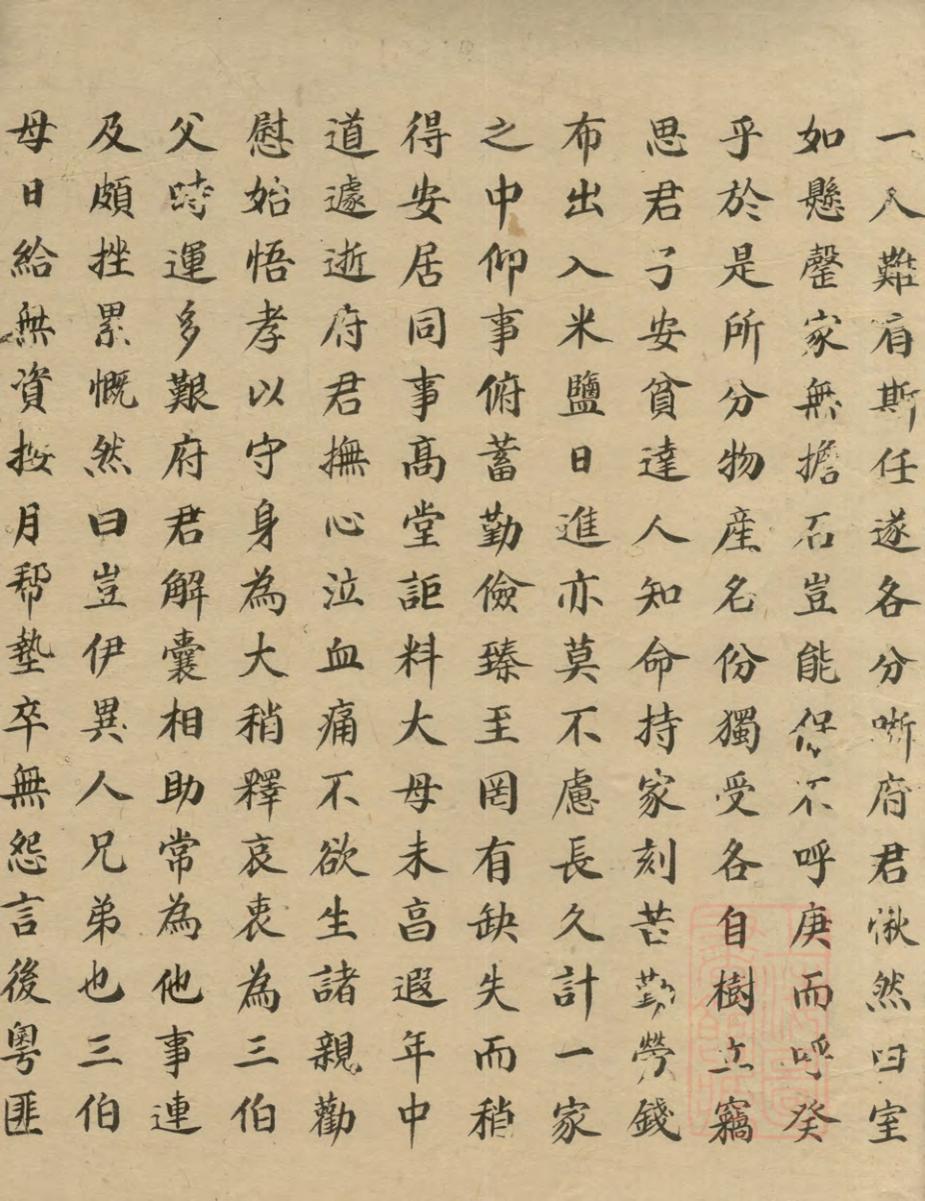 一人難肩斯任遂各分嘶府君愀然曰室
如懸罄家無擔石豈能保不呼庚而呼癸
乎於是所分物產名份獨受各自樹立竊
思君子安貧達人知命持家刻苦勤勞錢
布出入米鹽日進亦莫不慮長久計一家
之中仰事俯蓄勤儉臻至罔有缺失而稍
得安居同事高堂詎料大母未享遐年中
道遽逝府君撫心泣血痛不欲生諸親勸
慰始悟孝以守身為大稍釋哀衷為三伯
父時運多艱府君解囊相助常為他事連
及頗挫累慨然曰豈伊異人兄弟也三伯
母日給無資按月幫墊卒無怨言後粵匪